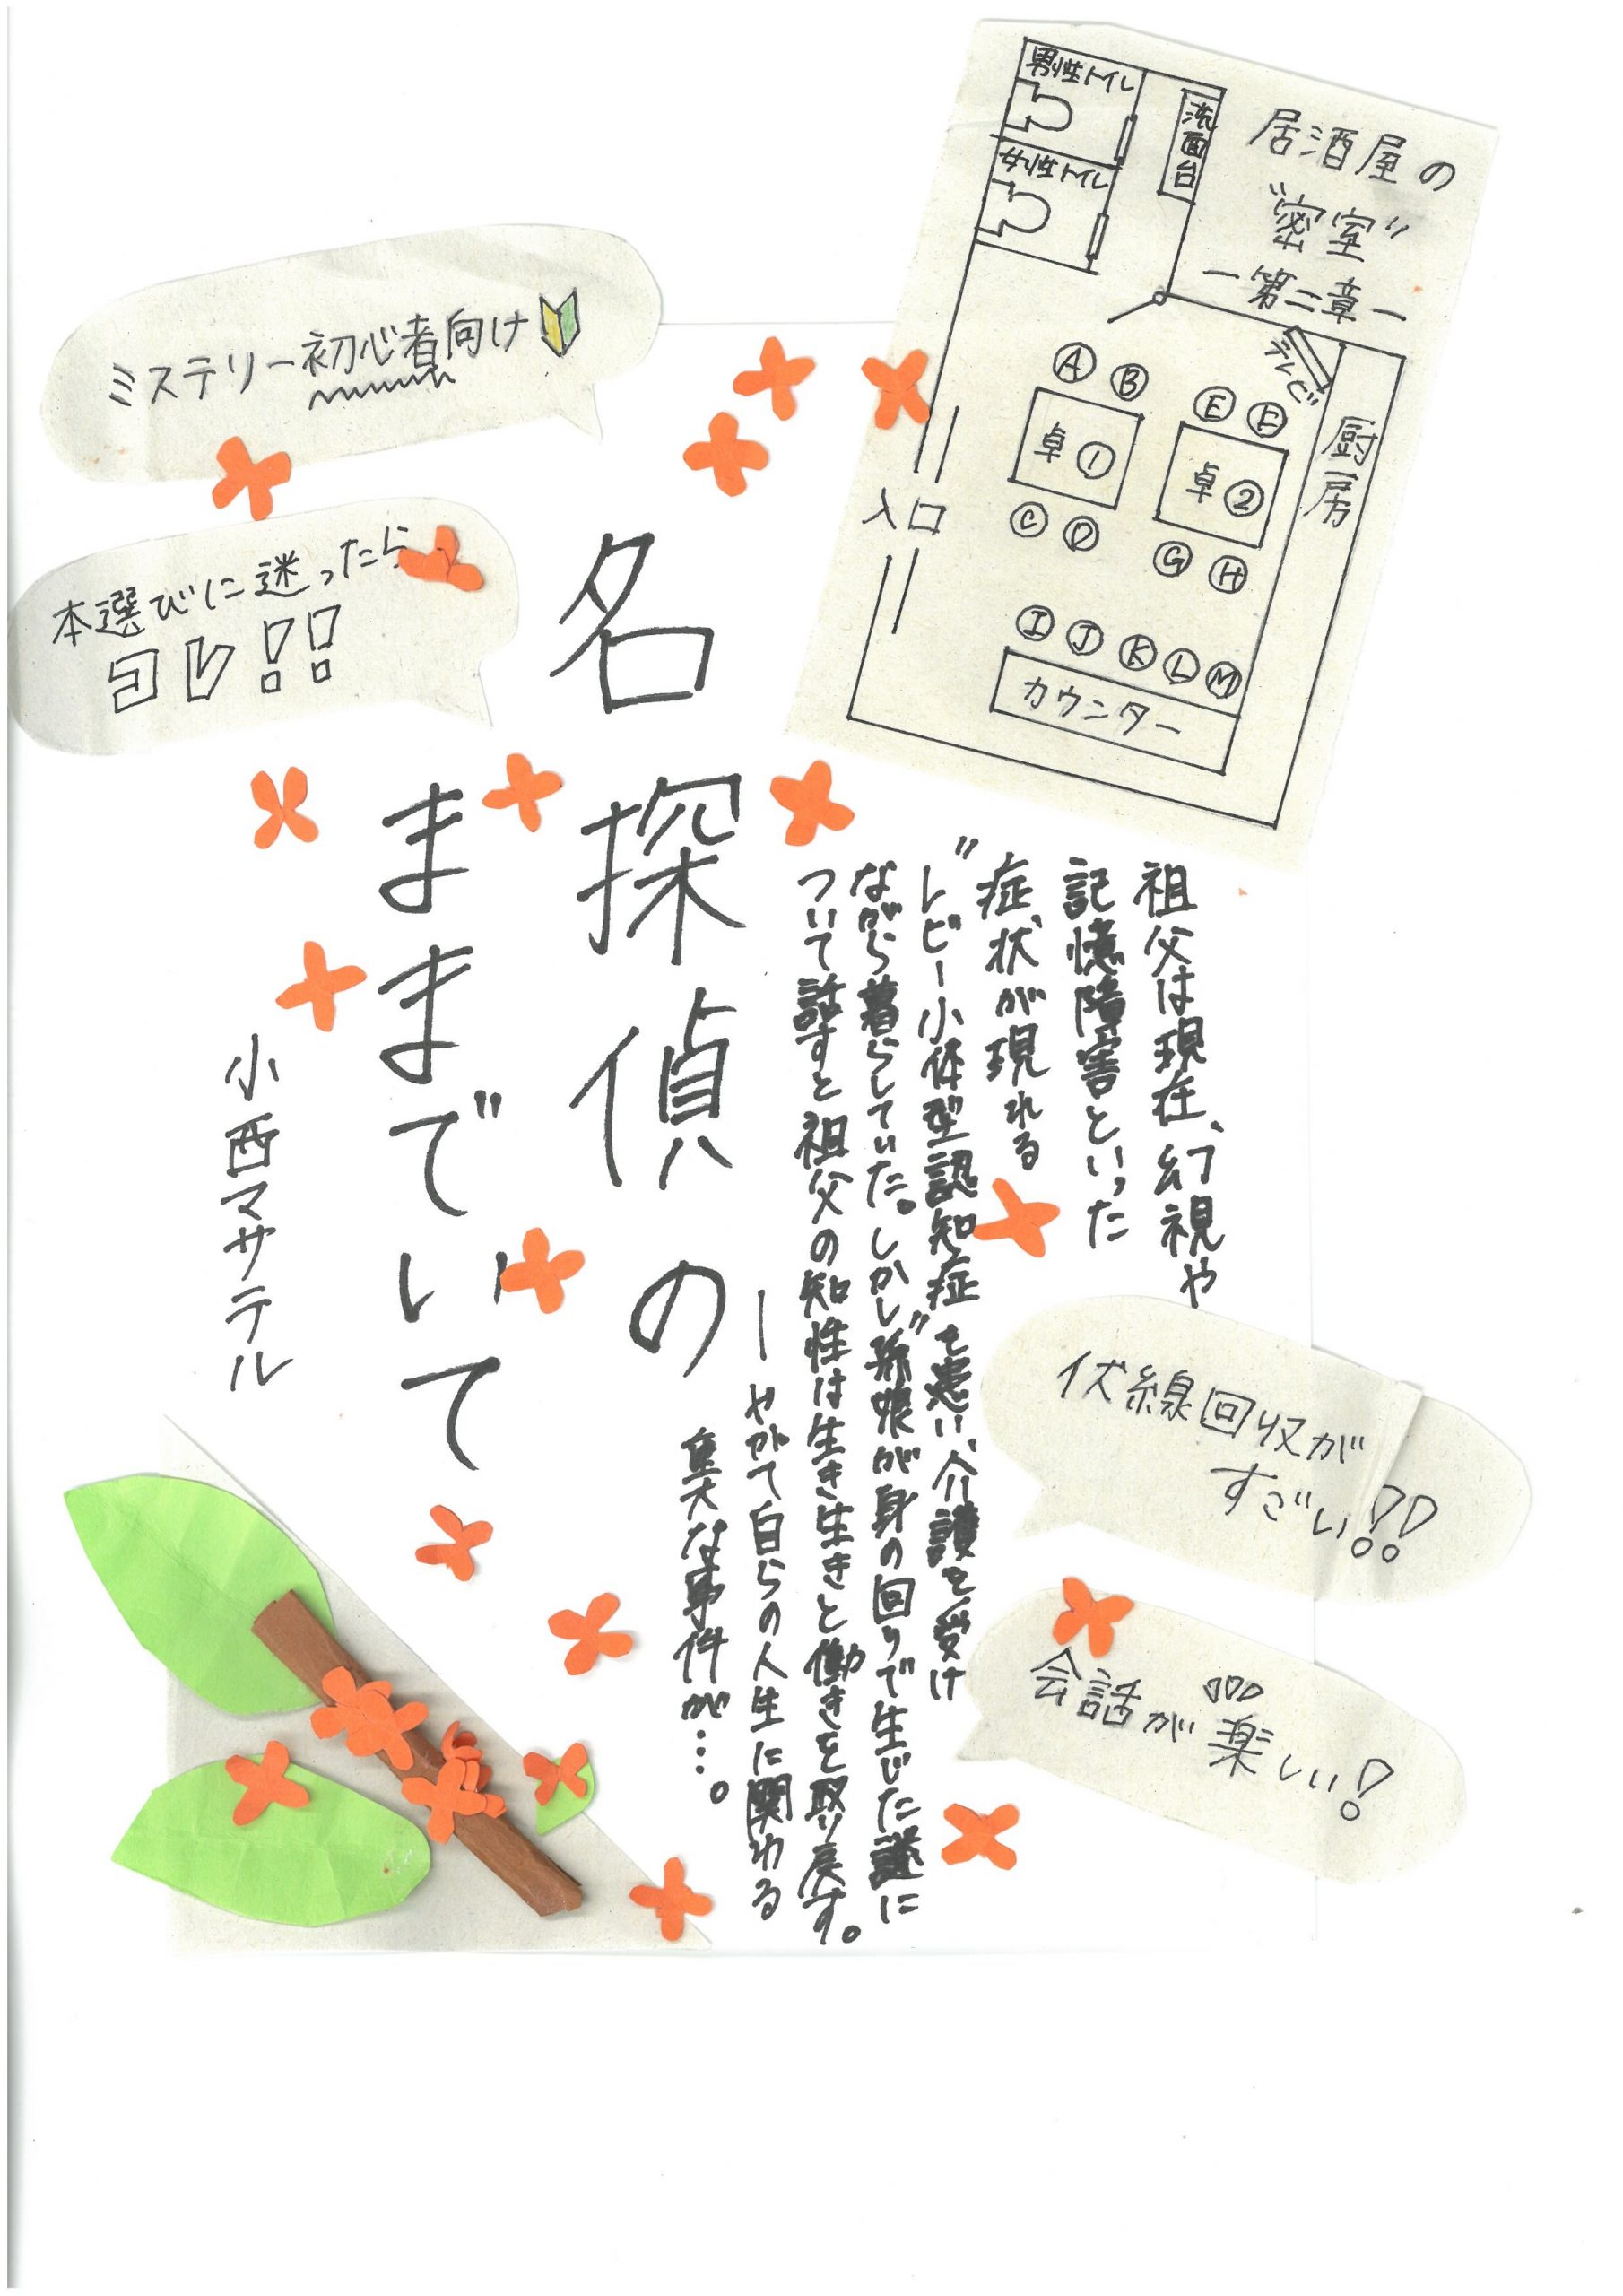 居酒屋の
"密室"
ー第二章ー
男性トイレ
女性トイレ
洗面台
テレビ
厨房
Ⓐ Ⓑ
Ⓔ Ⓕ
卓①
卓②
Ⓒ Ⓓ
Ⓖ Ⓗ
入口
Ⓘ Ⓙ Ⓚ Ⓛ Ⓜ
カウンター
ミステリー初心者向け
本選びに迷ったら
コレ!!
祖父は現在、幻視や
記憶障害といった
症状が現れる
"レビー小体型認知症"を患い、介護を受け
ながら暮らしていた。しかし、孫娘が身の回りで生じた謎に
ついて話すと祖父の知性は生き生きと働きを取り戻す。
ーやがて自らの人生に関わる
重大な事件が…。
名探偵の
ままでいて
小西マサテル
伏線回収が
すごい!!
会話が楽しい!